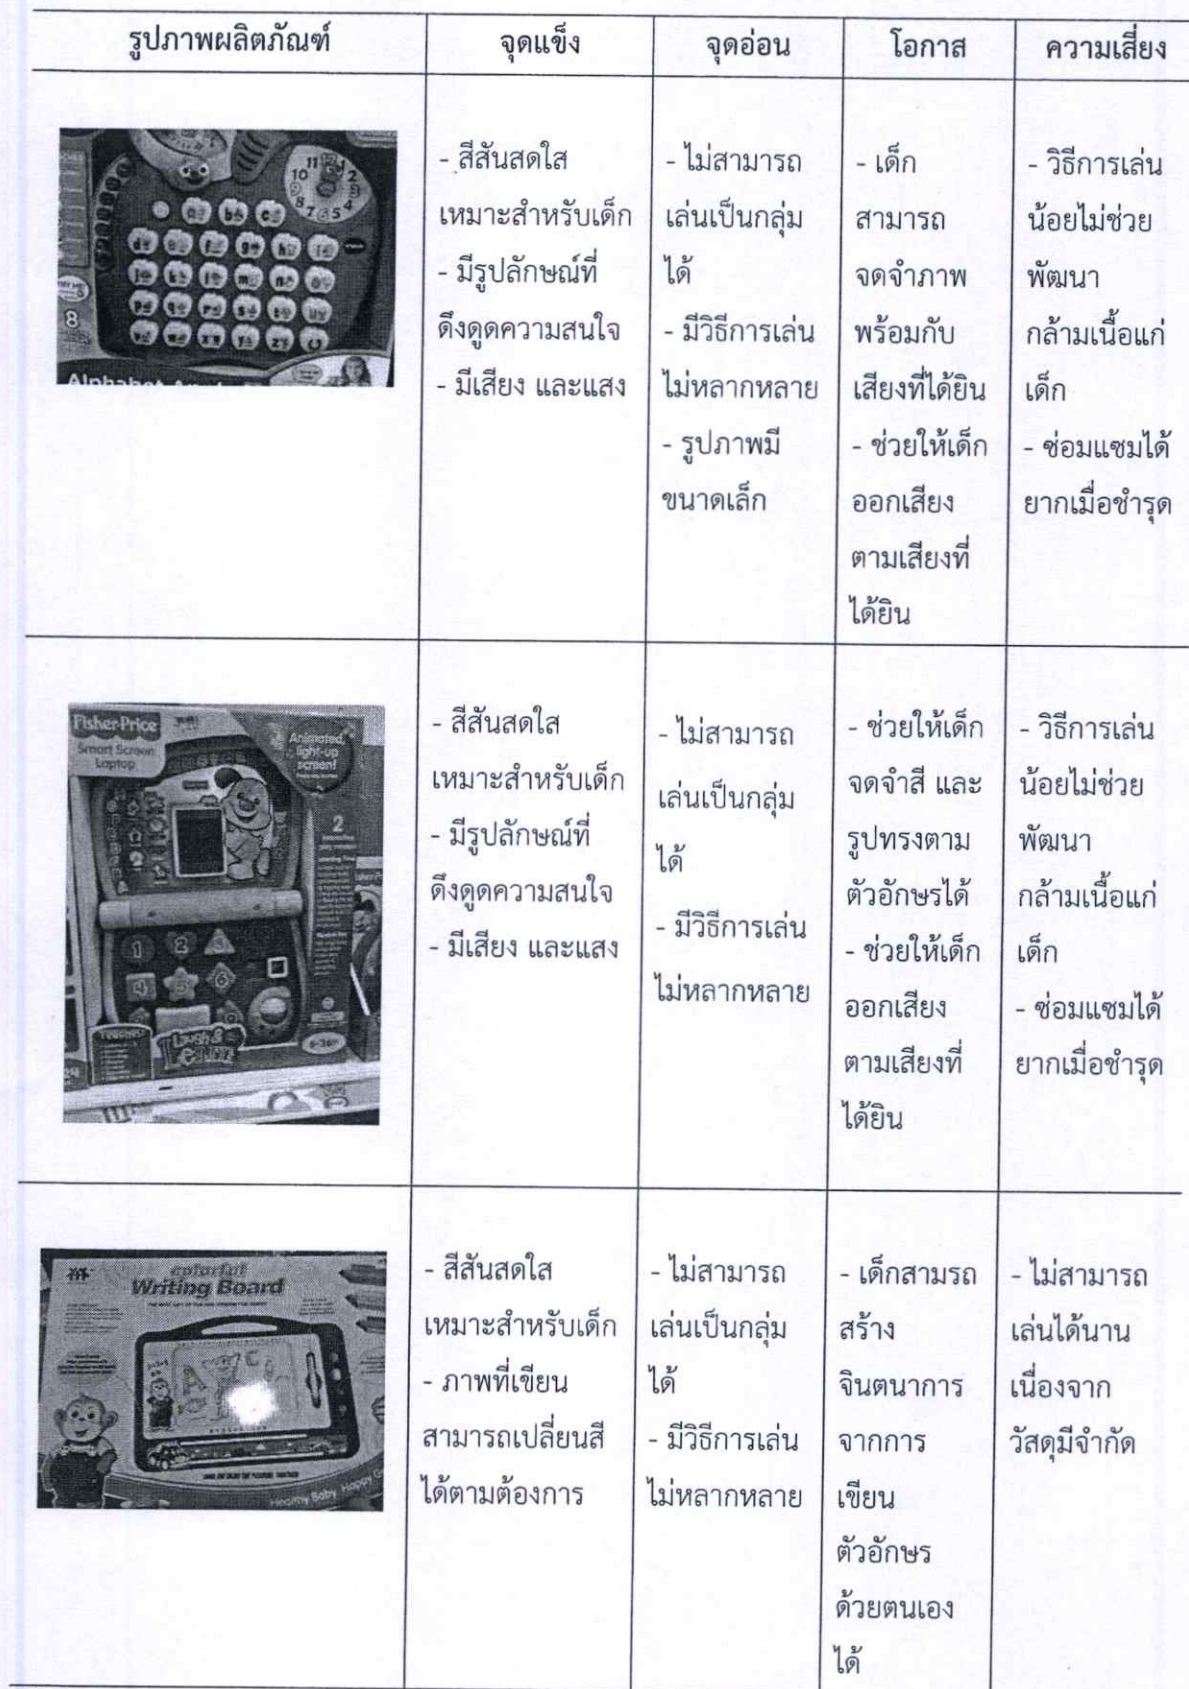 รูปภาพผลิตภัณฑ์ จุดแข็ง จุดอ่อน โอกาส ความเสี่ยง
- สีสันสดใส
เหมาะสำหรับเด็ก
- มีรูปลักษณ์ที่
ดึงดูดความสนใจ
- มีเสียง และแสง
- ไม่สามารถ
เล่นเป็นกลุ่ม
ได้
- มีวิธีการเล่น
ไม่หลากหลาย
- รูปภาพมี
ขนาดเล็ก
- เด็ก
สามารถ
จดจำภาพ
พร้อมกับ
เสียงที่ได้ยิน
- ช่วยให้เด็ก
ออกเสียง
ตามเสียงที่
ได้ยิน
- วิธีการเล่น
น้อยไม่ช่วย
พัฒนา
กล้ามเนื้อแก่
เด็ก
- ซ่อมแซมได้
ยากเมื่อชำรุด
Fisher-Price
Smart Screen
Laptop
Animated,
light-up
screen!
2
1 2
4 5 6
Laugh &
- สีสันสดใส
เหมาะสำหรับเด็ก
- มีรูปลักษณ์ที่
ดึงดูดความสนใจ
- มีเสียง และแสง
- ไม่สามารถ
เล่นเป็นกลุ่ม
ได้
- มีวิธีการเล่น
ไม่หลากหลาย
- ช่วยให้เด็ก
จดจำสี และ
รูปทรงตาม
ตัวอักษรได้
- ช่วยให้เด็ก
ออกเสียง
ตามเสียงที่
ได้ยิน
- วิธีการเล่น
น้อยไม่ช่วย
พัฒนา
กล้ามเนื้อแก่
เด็ก
- ซ่อมแซมได้
ยากเมื่อชำรุด
colorful
Writing Board
Healthy Baby Happy
- สีสันสดใส
เหมาะสำหรับเด็ก
- ภาพที่เขียน
สามารถเปลี่ยนสี
ได้ตามต้องการ
- ไม่สามารถ
เล่นเป็นกลุ่ม
ได้
- มีวิธีการเล่น
ไม่หลากหลาย
- เด็กสามรถ
สร้าง
จินตนาการ
จากการ
เขียน
ตัวอักษร
ด้วยตนเอง
ได้
- ไม่สามารถ
เล่นได้นาน
เนื่องจาก
วัสดุมีจำกัด